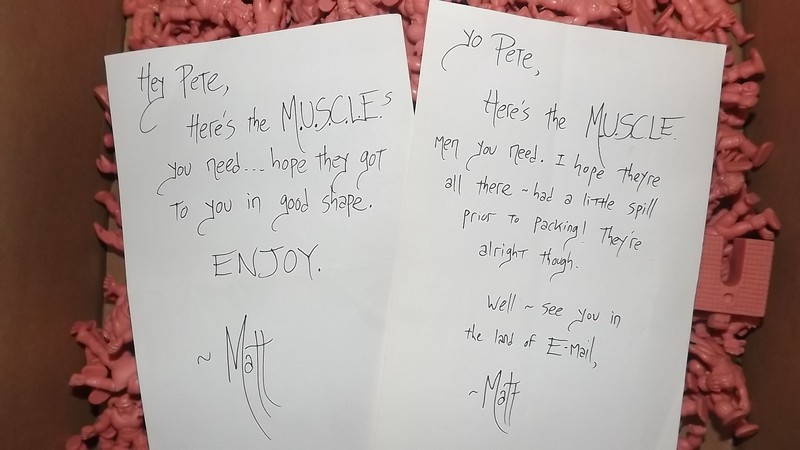 Hey Pete,
Here's the M.U.S.C.L.E.s
you need... hope they got
to you in good shape.
ENJOY.
~ Matt
Yo Pete,
Here's the M.U.S.C.L.E.
men you need. I hope they're
all there ~ had a little spill
prior to packing! They're
alright though.
Well ~ see you in
the land of E-Mail,
~ Matt